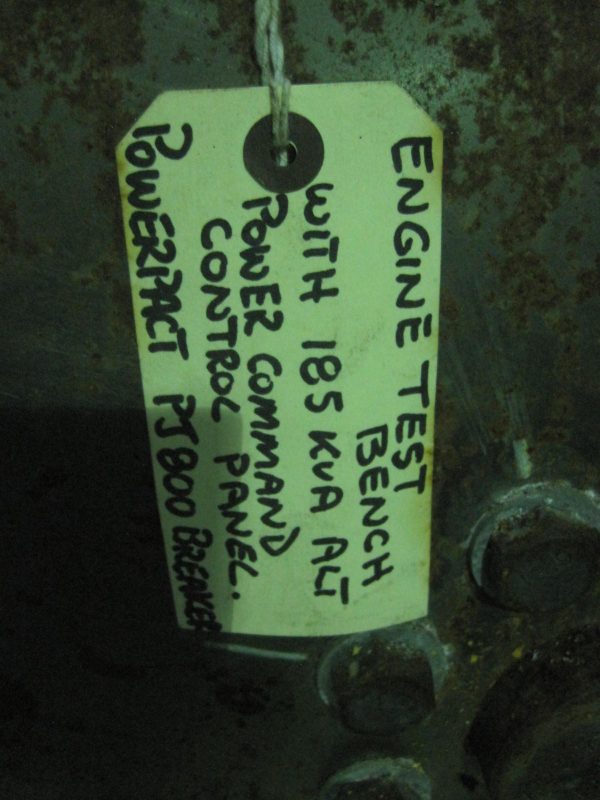 ENGINE TEST
BENCH
WITH 185 KVA ALT
POWER COMMAND
CONTROL PANEL.
POWERPACT PJ 800 BREAKER